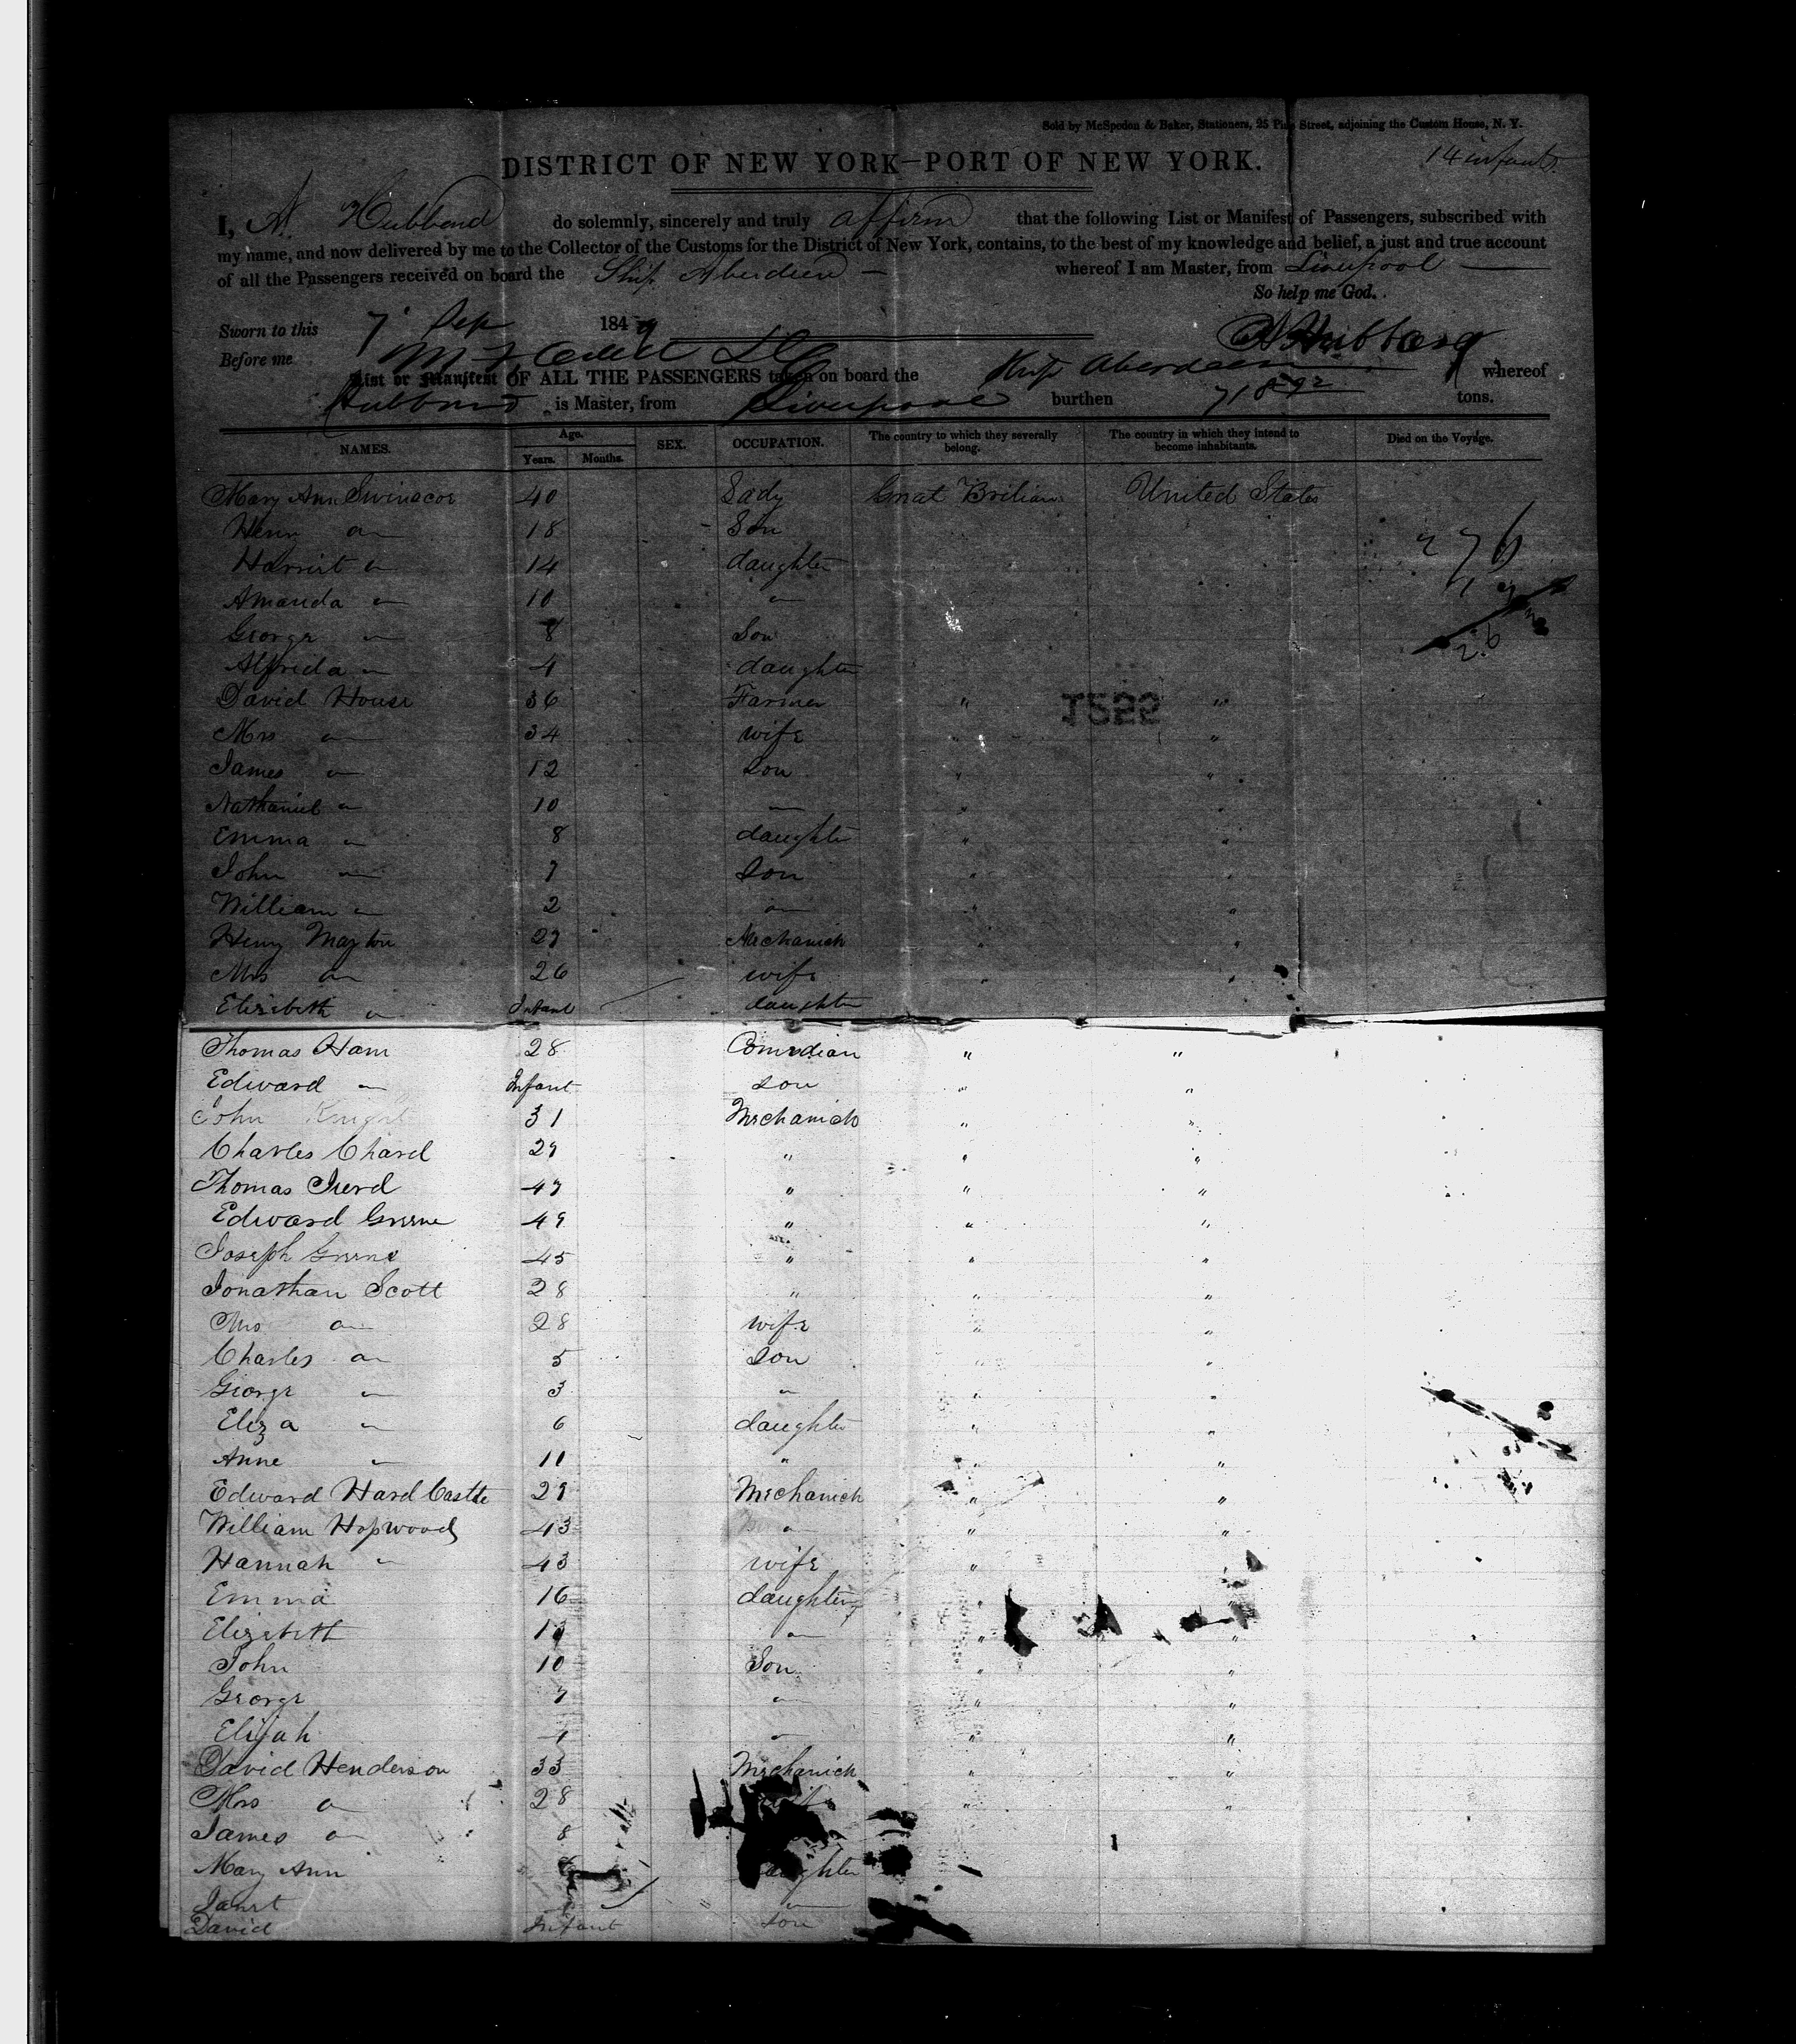 Sold by McSpedon & Baker, Stationers, 25 Pine Street, adjoining the Custom House, N. Y.
14 infants
DISTRICT OF NEW YORK—PORT OF NEW YORK.
I, A. Hubbard do solemnly, sincerely and truly affirm that the following List or Manifest of Passengers, subscribed with
my name, and now delivered by me to the Collector of the Customs for the District of New York, contains, to the best of my knowledge and belief, a just and true account
of all the Passengers received on board the Ship Aberdeen — whereof I am Master, from Liverpool —
So help me God.
Sworn to this 7 Sep 1849 A Hubbard
Before me
List or Manifest OF ALL THE PASSENGERS taken on board the Ship Aberdeen whereof
Hubbard is Master, from Liverpool burthen 718 tons.
NAMES. Age. Years. Months. SEX. OCCUPATION. The country to which they severally belong. The country in which they intend to become inhabitants. Died on the Voyage.
Mary Ann 40 Lady Great Britian United States
Henry " 18 Son
276
Harriet " 14 daughter
Amanda " 10 "
George " 8 Son
26
Alfrida " 4 daughter
David House 36 Farmer " "
Mrs " 34 wife " "
James " 12 Son " "
Nathaniel " 10 " " "
Emma " 8 daughter " "
John " 7 Son " "
William " 2 " " "
Henry Mayton 27 Mechanick " "
Mrs " 26 wife " "
Elizabeth " Infant daughter
Thomas Ham 28 Comedian " "
Edward " Infant Son " "
John Knight 31 Mechanick " "
Charles Chard 29 " " "
Thomas 47 " " "
Edward Greene 49 " " "
Joseph Greene 45 " " "
Jonathan Scott 28 " " "
Mrs " 28 wife " "
Charles " 5 Son " "
George " 3 " " "
Eliza " 6 daughter " "
Anne " 11 " " "
Edward Hard Castle 29 Mechanick " "
William Hopwood 43 " " "
Hannah " 43 wife " "
Emma 16 daughter " "
Elizabeth 13 " " "
John 10 Son " "
George 7 " " "
Elijah 4 " " "
David Henderson 33 Mechanick " "
Mrs " 28 wife " "
James " 8
Mary Ann daughter
Janet "
David Infant Son